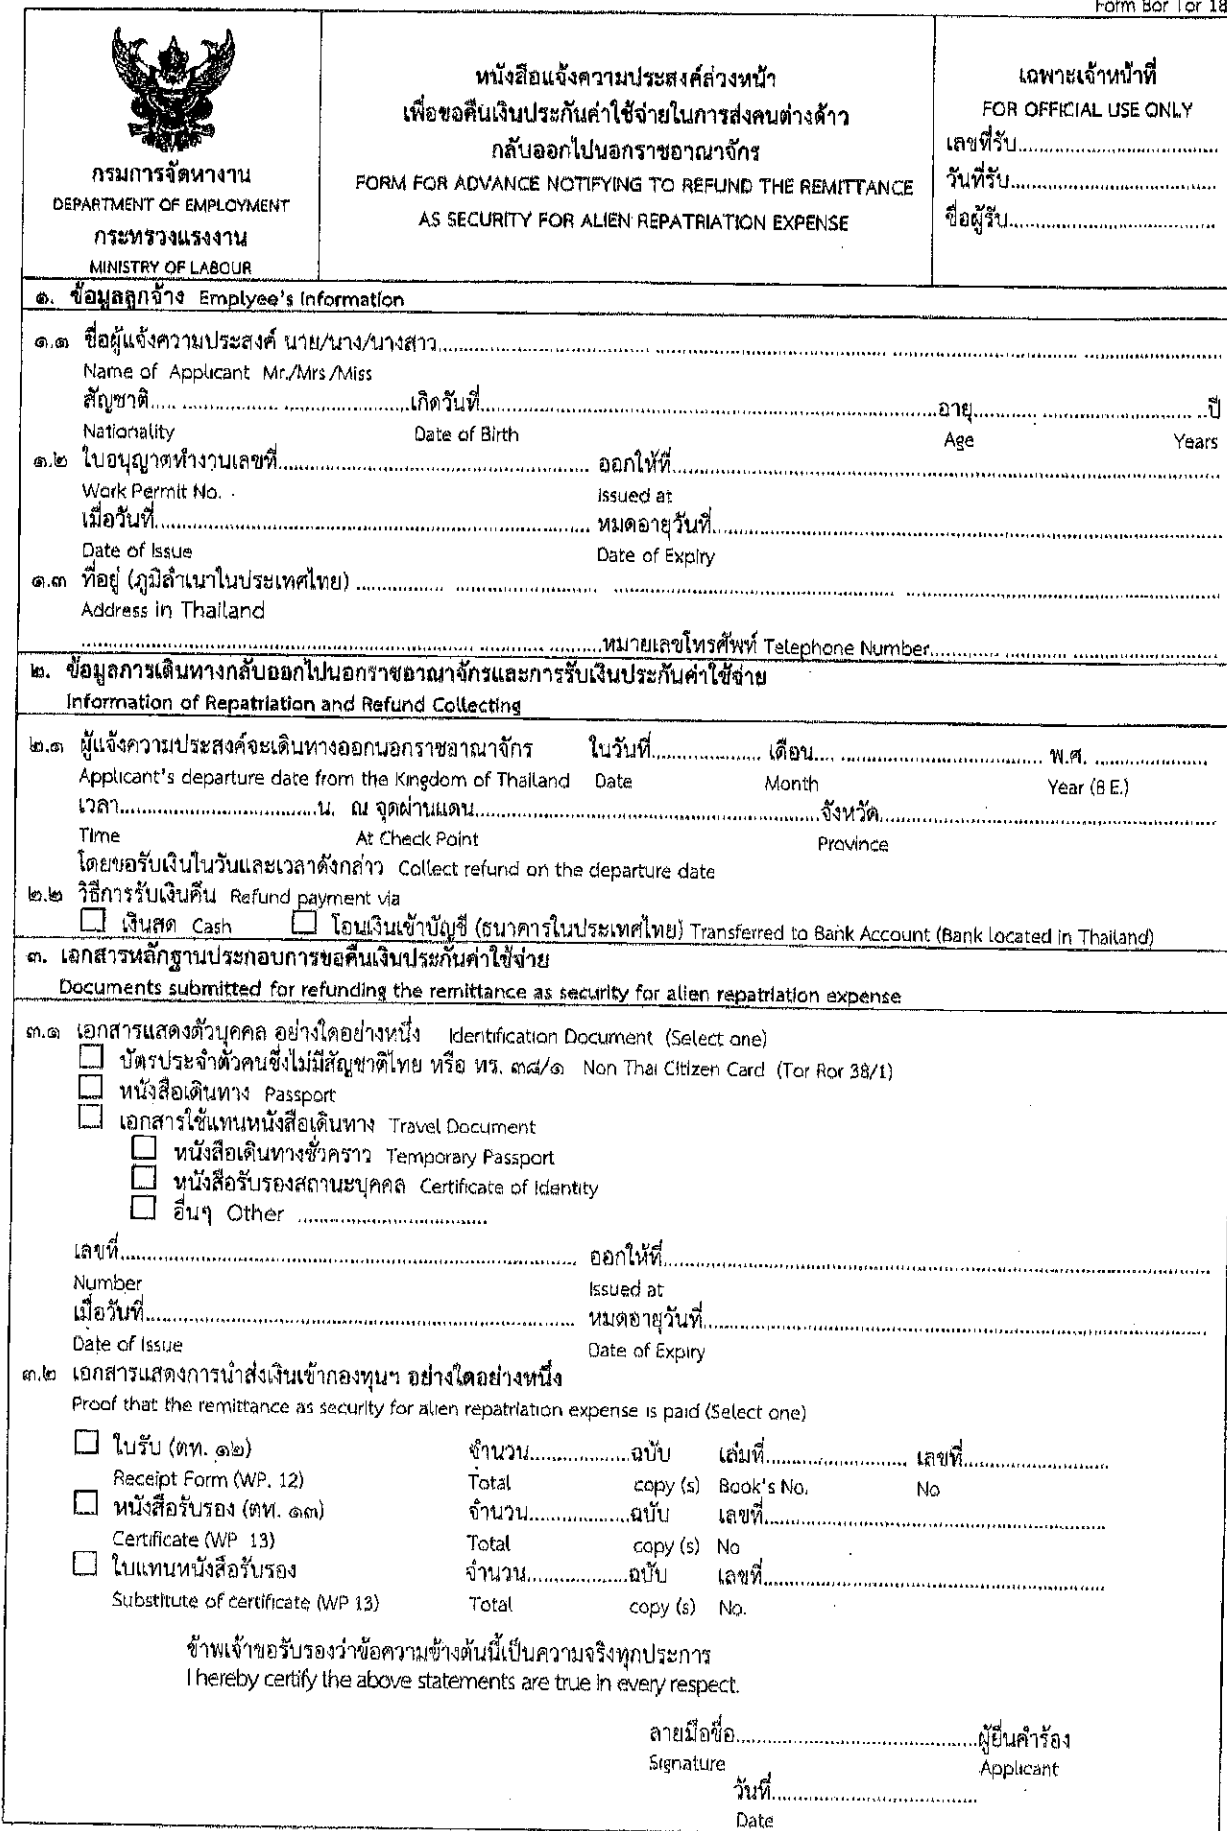 Form Bor Tor 18
กรมการจัดหางาน
DEPARTMENT OF EMPLOYMENT
กระทรวงแรงงาน
MINISTRY OF LABOUR
หนังสือแจ้งความประสงค์ล่วงหน้า
เพื่อขอคืนเงินประกันค่าใช้จ่ายในการส่งคนต่างด้าว
กลับออกไปนอกราชอาณาจักร
FORM FOR ADVANCE NOTIFYING TO REFUND THE REMITTANCE
AS SECURITY FOR ALIEN REPATRIATION EXPENSE
เฉพาะเจ้าหน้าที่
FOR OFFICIAL USE ONLY
เลขที่รับ..............................
วันที่รับ..............................
ชื่อผู้รับ..............................
๑. ข้อมูลลูกจ้าง Emplyee's Information
๑.๑ ชื่อผู้แจ้งความประสงค์ นาย/นาง/นางสาว..............................
Name of Applicant Mr./Mrs./Miss
สัญชาติ..............................เกิดวันที่..............................อายุ..............................ปี
Nationality Date of Birth Age Years
๑.๒ ใบอนุญาตทำงานเลขที่.............................. ออกให้ที่..............................
Work Permit No. Issued at
เมื่อวันที่.............................. หมดอายุวันที่..............................
Date of Issue Date of Expiry
๑.๓ ที่อยู่ (ภูมิลำเนาในประเทศไทย) ..............................
Address in Thailand
..............................หมายเลขโทรศัพท์ Telephone Number..............................
๒. ข้อมูลการเดินทางกลับออกไปนอกราชอาณาจักรและการรับเงินประกันค่าใช้จ่าย
Information of Repatriation and Refund Collecting
๒.๑ ผู้แจ้งความประสงค์จะเดินทางออกนอกราชอาณาจักร ในวันที่.................... เดือน.............................. พ.ศ. ....................
Applicant's departure date from the Kingdom of Thailand Date Month Year (B E.)
เวลา..............................น. ณ จุดผ่านแดน..............................จังหวัด..............................
Time At Check Point Province
โดยขอรับเงินในวันและเวลาดังกล่าว Collect refund on the departure date
๒.๒ วิธีการรับเงินคืน Refund payment via
☐ เงินสด Cash ☐ โอนเงินเข้าบัญชี (ธนาคารในประเทศไทย) Transferred to Bank Account (Bank located in Thailand)
๓. เอกสารหลักฐานประกอบการขอคืนเงินประกันค่าใช้จ่าย
Documents submitted for refunding the remittance as security for alien repatriation expense
๓.๑ เอกสารแสดงตัวบุคคล อย่างใดอย่างหนึ่ง Identification Document (Select one)
☐ บัตรประจำตัวคนซึ่งไม่มีสัญชาติไทย หรือ ทร. ๓๘/๑ Non Thai Citizen Card (Tor Ror 38/1)
☐ หนังสือเดินทาง Passport
☐ เอกสารใช้แทนหนังสือเดินทาง Travel Document
☐ หนังสือเดินทางชั่วคราว Temporary Passport
☐ หนังสือรับรองสถานะบุคคล Certificate of Identity
☐ อื่นๆ Other ..............................
เลขที่.............................. ออกให้ที่..............................
Number Issued at
เมื่อวันที่.............................. หมดอายุวันที่..............................
Date of Issue Date of Expiry
๓.๒ เอกสารแสดงการนำส่งเงินเข้ากองทุนฯ อย่างใดอย่างหนึ่ง
Proof that the remittance as security for alien repatriation expense is paid (Select one)
☐ ใบรับ (ตท. ๑๒) จำนวน..................ฉบับ เล่มที่.................... เลขที่....................
Receipt Form (WP. 12) Total copy (s) Book's No. No
☐ หนังสือรับรอง (ตท. ๑๓) จำนวน..................ฉบับ เลขที่..............................
Certificate (WP 13) Total copy (s) No
☐ ใบแทนหนังสือรับรอง จำนวน..................ฉบับ เลขที่..............................
Substitute of certificate (WP 13) Total copy (s) No.
ข้าพเจ้าขอรับรองว่าข้อความข้างต้นนี้เป็นความจริงทุกประการ
I hereby certify the above statements are true in every respect.
ลายมือชื่อ..............................ผู้ยื่นคำร้อง
Signature Applicant
วันที่..............................
Date